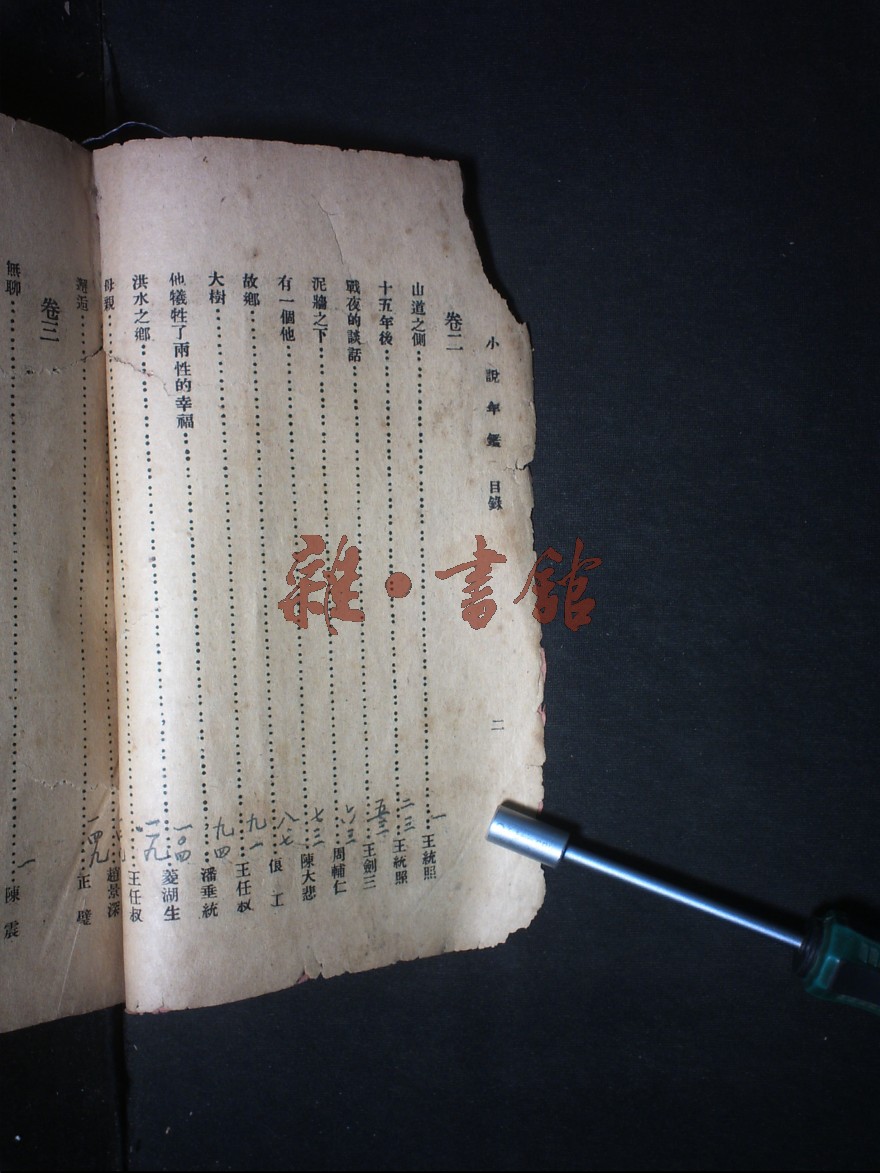 小說年鑑 目錄 二
卷二
山道之側 一 王統照
十五年後 二三 王統照
戰夜的談話 五三 王劍三
泥牆之下 六三 周輔仁
有一個他 七三 陳大悲
故鄉 八七 俍工
大樹 九一 王任叔
他犧牲了兩性的幸福 九四 潘垂統
洪水之鄉 一〇四 菱湖生
母親 一一九 王任叔
邂逅 趙景深
一四九 正璧
卷三
無聊 一 陳震
雜·書館